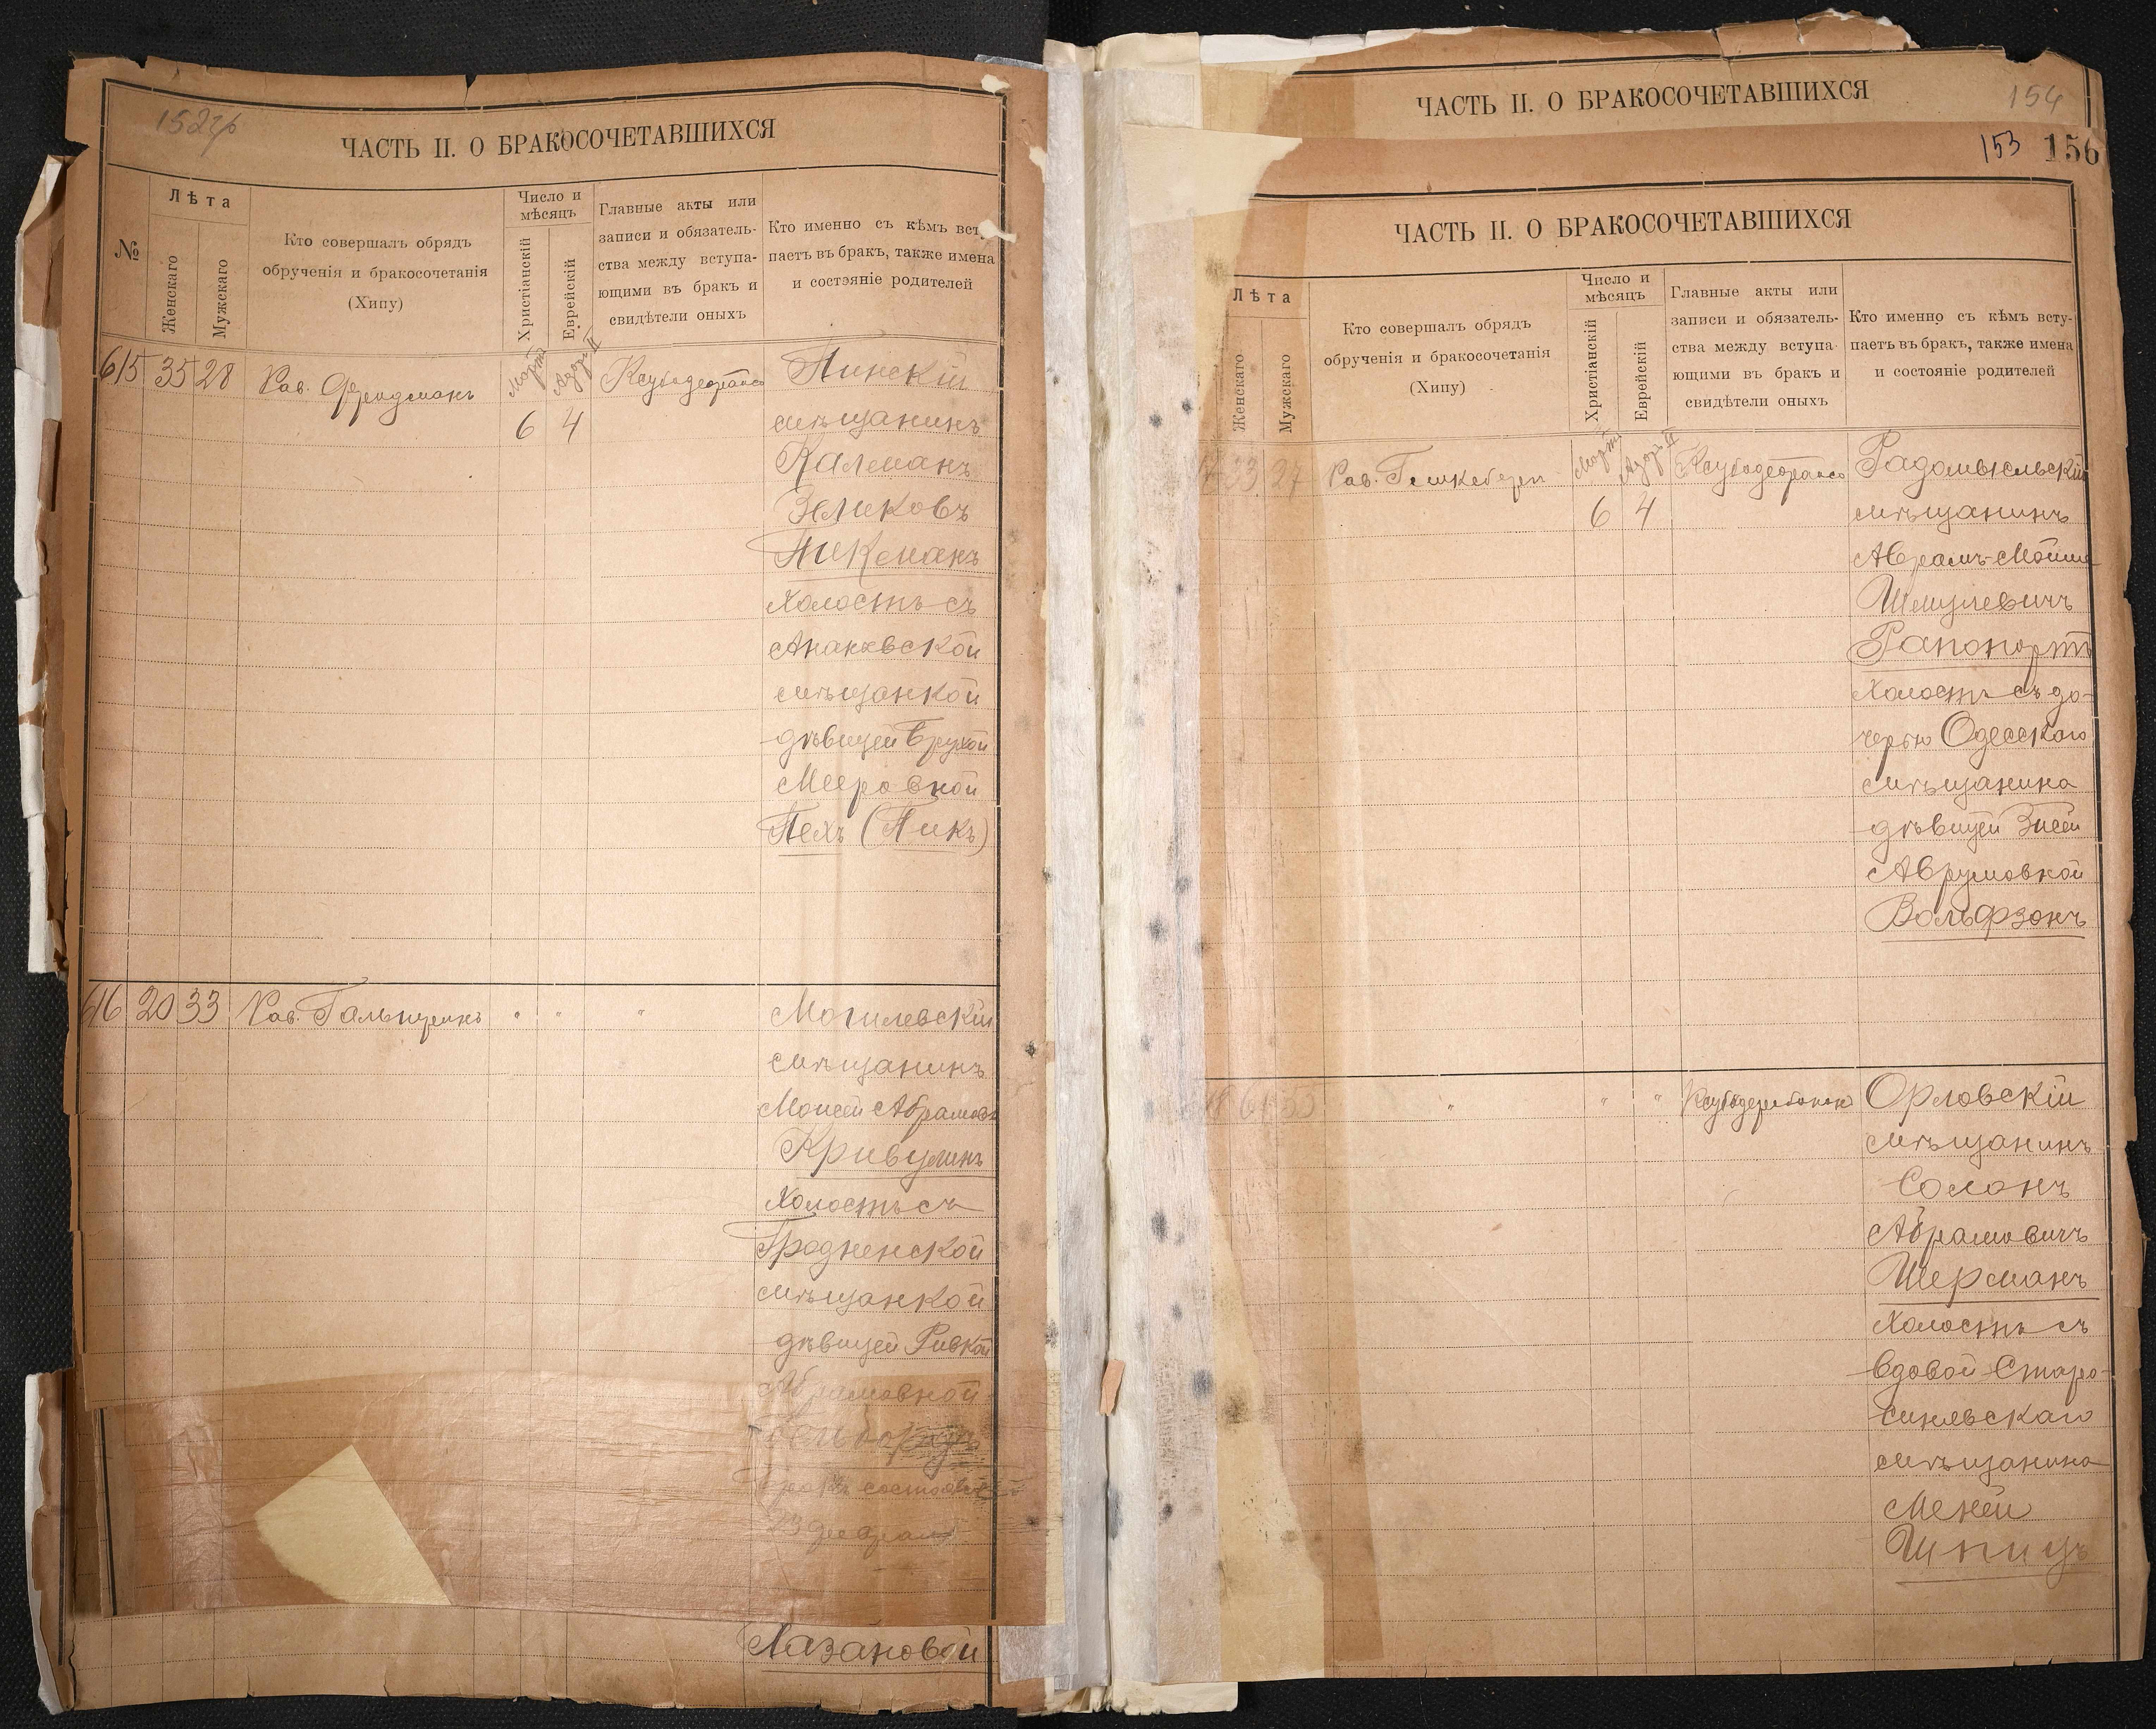 ЧАСТЬ II. О БРАКОСОЧЕТАВШИХСЯ
№
Лѣта
Женскаго
Мужскаго
Кто совершалъ обрядъ
обрученія и бракосочетанія
(Хипу)
Число и
мѣсяцъ
Христіанскій
Еврейскій
Главные акты или
записи и обязатель-
ства между вступа-
ющими въ бракъ и
свидѣтели оныхъ
Кто именно съ кѣмъ всту-
паетъ въ бракъ, также имена
и состояніе родителей
615 35 28 Рав. Фридманъ
Мартъ Адаръ II
6 4
Пинскій
мѣщанинъ
Калманъ
Зеликовъ
Пикманъ
холостъ съ
мѣщанкой
дѣвицей Брухой
Мееровной
Пехъ (Пикъ)
616 20 33 Рав. Гальперинъ " " "
Могилевскій
мѣщанинъ
Моисей Абрамовъ
Кривулинъ
холостъ съ
Гродненской
мѣщанкой
дѣвицей Ривкой
Абрамовной
бракъ состоялся
23 февраля
Лазановой
ЧАСТЬ II. О БРАКОСОЧЕТАВШИХСЯ
154
153 156
ЧАСТЬ II. О БРАКОСОЧЕТАВШИХСЯ
Лѣта
Женскаго
Мужскаго
Кто совершалъ обрядъ
обрученія и бракосочетанія
(Хипу)
Число и
мѣсяцъ
Христіанскій
Еврейскій
Главные акты или
записи и обязатель-
ства между вступа-
ющими въ бракъ и
свидѣтели оныхъ
Кто именно съ кѣмъ всту-
паетъ въ бракъ, также имена
и состояніе родителей
23 27 Рав.
Мартъ Адаръ II
6 4
Радомысльскій
мѣщанинъ
Абрамъ-Мойше
Шмулевичъ
Рапопортъ
холостъ съ до-
черью Одесскаго
мѣщанина
дѣвицей Энсей
Аврумовной
Вольфзонъ
" " "
Орловскій
мѣщанинъ
Солонъ
Абрамовичъ
Шерманъ
холостъ съ
вдовой Старо-
синявскаго
мѣщанина
Меней
Шпицъ